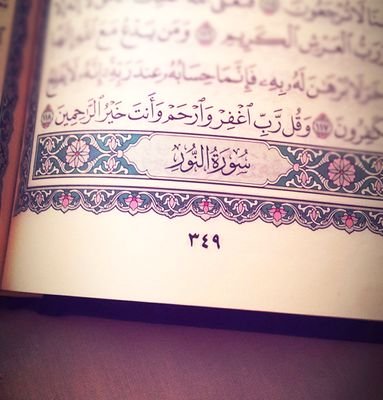 لَا تُرْجَعُونَ
رَبُّ ٱلْعَرْشِ ٱلْكَرِيمِ ١١٦ وَمَن يَدْعُ مَعَ ٱللَّهِ
لَا بُرْهَٰنَ لَهُۥ بِهِۦ فَإِنَّمَا حِسَابُهُۥ عِندَ رَبِّهِۦٓ إِنَّهُۥ لَا يُفْلِحُ
ٱلْكَٰفِرُونَ ١١٧ وَقُل رَّبِّ ٱغْفِرْ وَٱرْحَمْ وَأَنتَ خَيْرُ ٱلرَّٰحِمِينَ ١١٨
سُورَةُ النُّورِ
٣٤٩